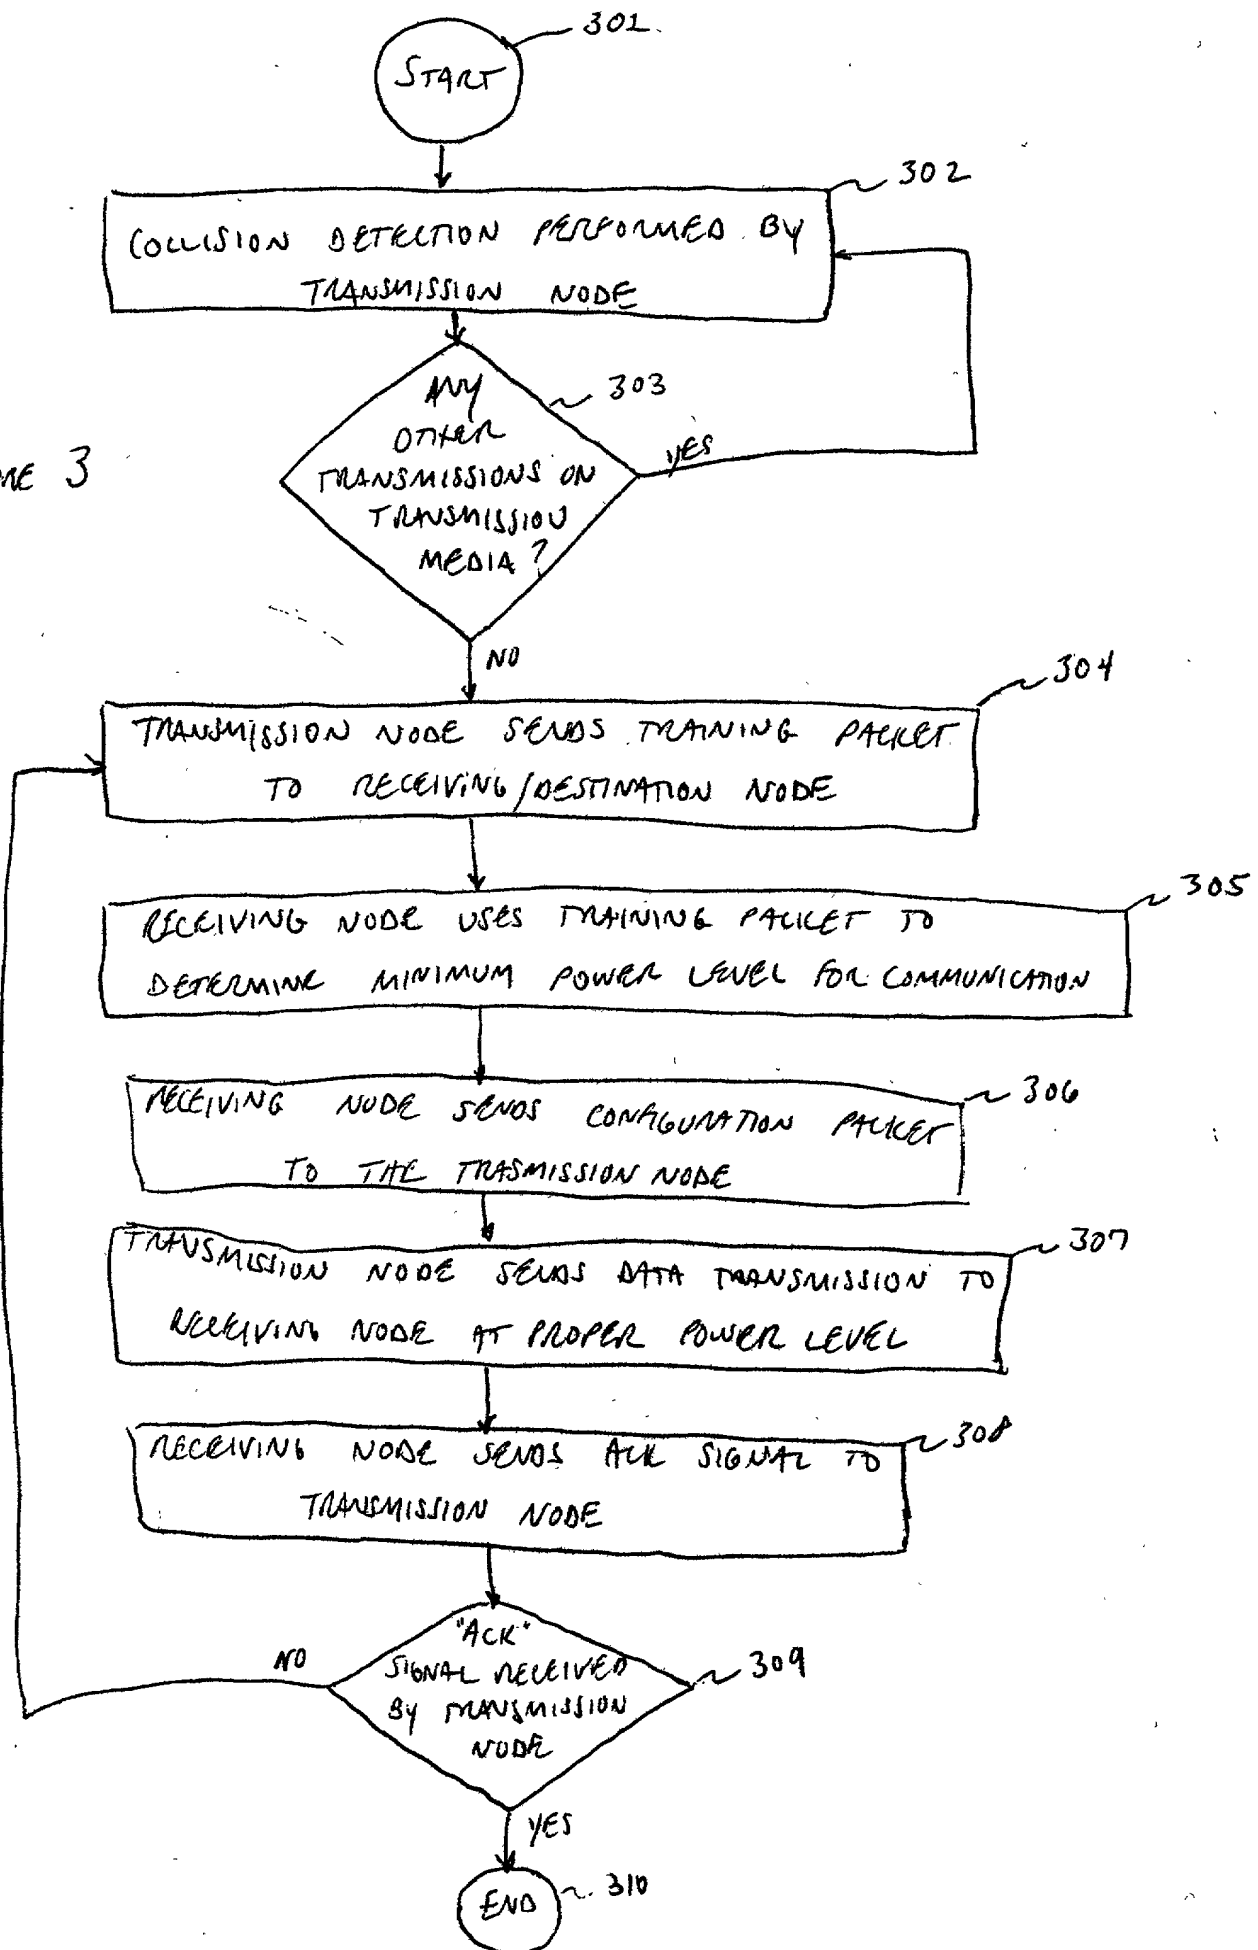 301
START
302
COLLISION DETECTION PERFORMED BY
TRANSMISSION NODE
303
ANY
OTHER
TRANSMISSIONS ON
TRANSMISSION
MEDIA?
YES
3
NO
304
TRANSMISSION NODE SENDS TRAINING PACKET
TO RECEIVING/DESTINATION NODE
305
RECEIVING NODE USES TRAINING PACKET TO
DETERMINE MINIMUM POWER LEVEL FOR COMMUNICATION
306
RECEIVING NODE SENDS CONFIGURATION PACKET
TO THE TRASMISSION NODE
307
TRANSMISSION NODE SENDS DATA TRANSMISSION TO
RECEIVING NODE AT PROPER POWER LEVEL
308
RECEIVING NODE SENDS ACK SIGNAL TO
TRANSMISSION NODE
NO
"ACK"
SIGNAL RECEIVED
BY TRANSMISSION
NODE
309
YES
END
310